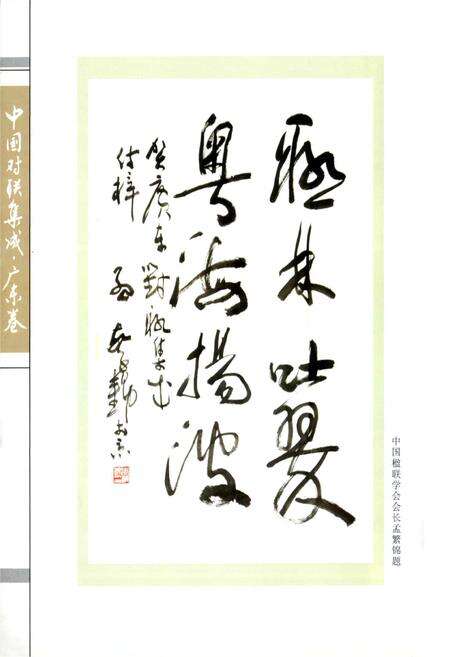 中国对联集成·广东卷
联林吐翠
粤海揚波
贺廣东對联集成
付梓 孟繁锦
中国楹联学会会长孟繁锦题